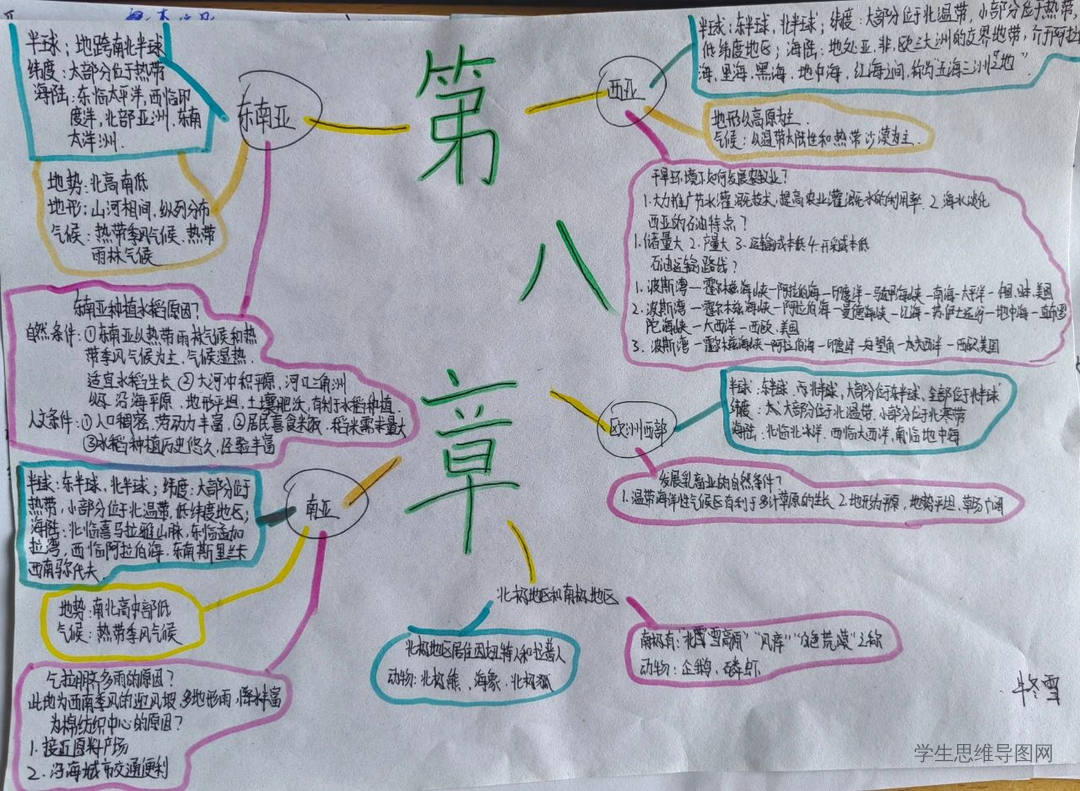 第
八
章
东南亚
半球：地跨南北半球
纬度：大部分位于热带
海陆：东临太平洋，西临印
度洋，北部亚洲、东南
大洋洲.
地势：北高南低
地形：山河相间，纵列分布
气候：热带季风气候、热带
雨林气候
东南亚种植水稻原因？
自然条件：①东南亚以热带雨林气候和热
带季风气候为主，气候湿热.
适宜水稻生长 ②大河冲积平原，河口三角洲
沿海平原、地形平坦，土壤肥沃，有利于水稻种植.
人文条件：①人口稠密，劳动力丰富，②居民喜食米饭，稻米需求量大
③水稻种植历史悠久，经验丰富
南亚
半球：东半球，北半球；纬度：大部分位于
热带，小部分位于北温带，低纬度地区；
海陆：北临喜马拉雅山脉，东临孟加
拉湾，西临阿拉伯海，东南斯里兰卡
西南马尔代夫.
地势：南北高中部低
气候：热带季风气候
乞拉朋齐多雨的原因？
此地为西南季风的迎风坡，多地形雨，降水丰富
为棉纺织中心的原因？
1. 接近原料产场
2. 沿海城市交通便利
西亚
半球：东半球，北半球；纬度：大部分位于北温带，小部分位于热带，
低纬度地区；海陆：地处亚、非、欧三大洲的交界地带，介于阿拉
海，里海，黑海，地中海，红海之间，称为“五海三洲之地”
地形以高原为主.
气候：以温带大陆性和热带沙漠为主.
干旱环境下如何发展农业？
1.大力推广节水灌溉技术，提高农业灌溉水的利用率 2. 海水淡化
西亚的石油特点？
1.储量大 2.产量大 3.运输成本低 4.开采成本低
石油运输路线？
1. 波斯湾—霍尔木兹海峡—阿拉伯海—印度洋—马六甲海峡—南海—太平洋—中国、日本、美国
2. 波斯湾—霍尔木兹海峡—阿拉伯海—曼德海峡—红海—苏伊士运河—地中海—直布罗
陀海峡—大西洋—西欧、美国
3. 波斯湾—霍尔木兹海峡—阿拉伯海—印度洋—好望角—大西洋—西欧美国
欧洲西部
半球：东半球、西北半球，大部分位于东半球，全部位于北半球
纬度：大部分位于北温带，小部分位于北寒带
海陆：北临北冰洋，西临大西洋，南临地中海
发展乳畜业的自然条件？
1.温带海洋性气候区有利于多汁草原的生长 2.地形为平原，地势平坦，草场广阔
北极地区和南极地区
北极地区居住因纽特人和拉普人
动物：北极熊、海象、北极狐
南极有：“冰雪高原”“风库”“白色荒漠”之称
动物：企鹅、磷虾
牛冬雪
学生思维导图网